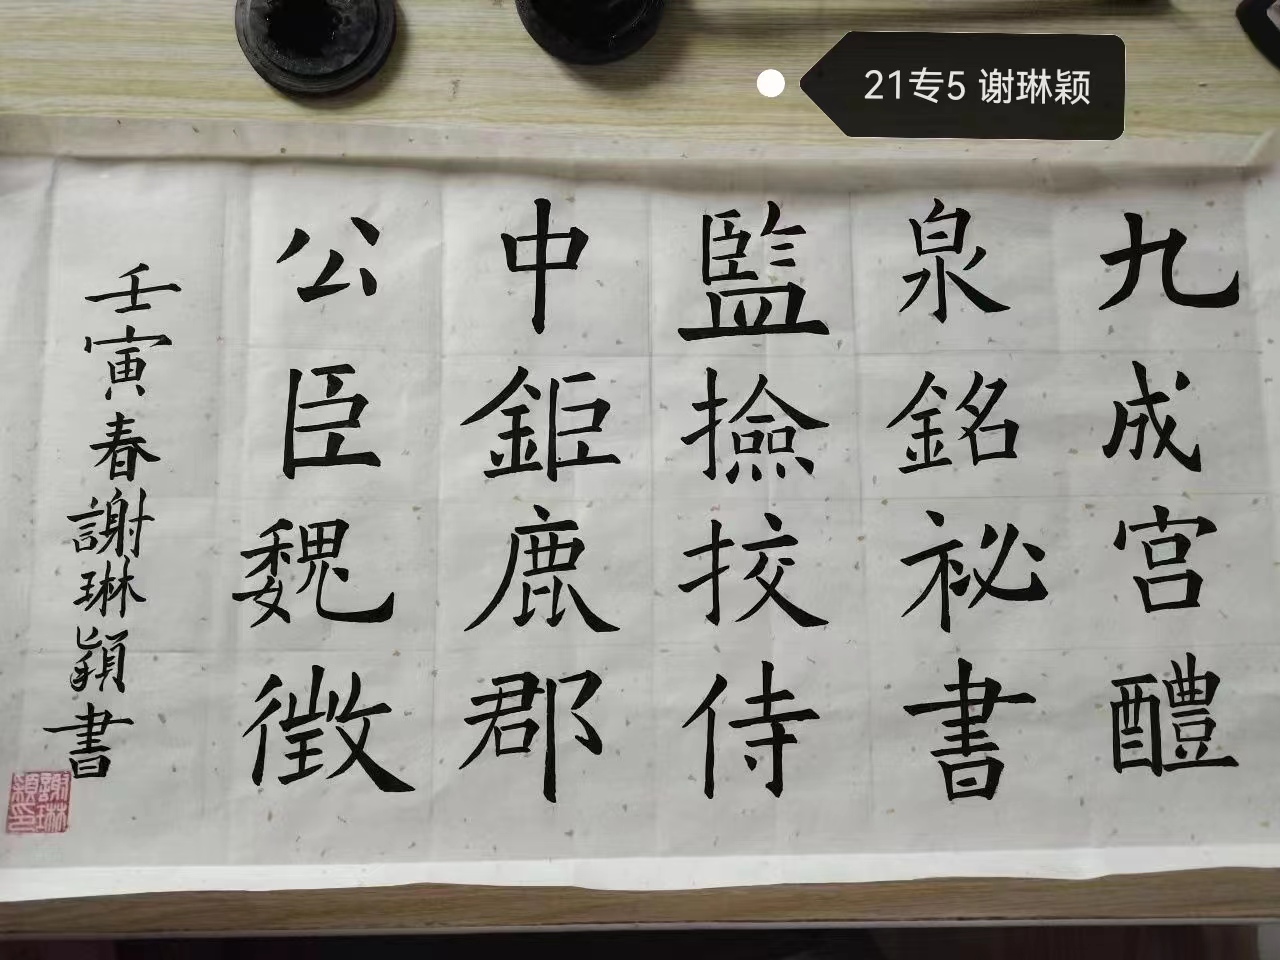 21专5 谢琳颖
九成宫醴
泉銘祕書
監撿挍侍
中鉅鹿郡
公臣魏徵
壬寅春謝琳穎書
謝琳穎印